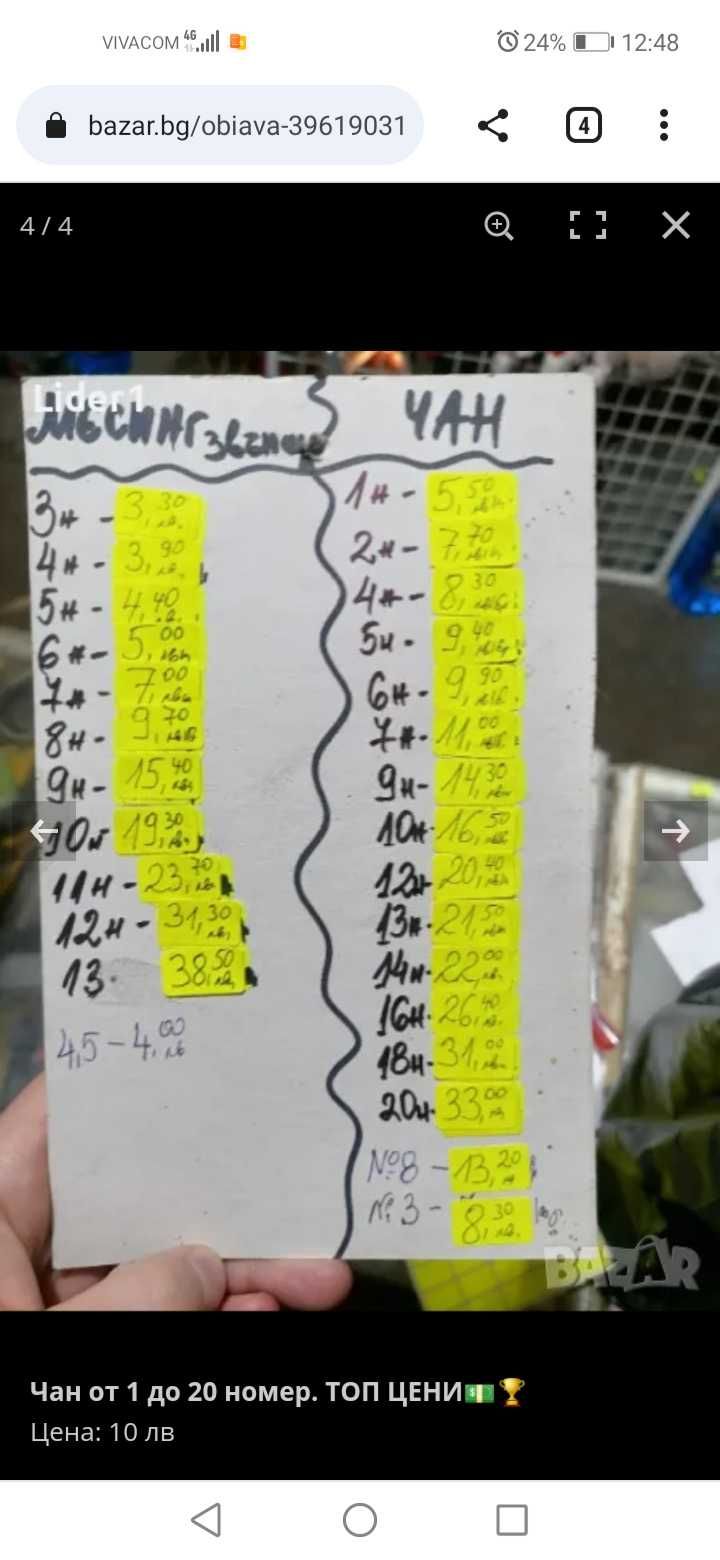 VIVACOM 4G 24% 12:48
bazar.bg/obiava-39619031 4
4 / 4
Lider1
МЕСИНГ звънци
3н - 3,30 лв.
4н - 3,90 лв.
5н - 4,40 лв.
6н - 5,00 лв
7н - 7,00 лв
8н - 9,70 лв
9н - 15,40 лв
10н 19,30 лв
11н - 23,70 лв
12н - 31,30 лв
13. 38,50 лв
4,5 - 4,00 лв
ЧАН
1н - 5,50 лв.
2н - 7,70 лв.
4н - 8,30 лв.
5н - 9,40 лв.
6н - 9,90 лв.
7н - 11,00 лв.
9н - 14,30 лв
10н - 16,50 лв
12н 20,40 лв
13н. 21,50 лв
14н. 22,00 лв.
16н. 26,40 лв.
18н. 31,00 лв
20н. 33,00 лв
№8 - 13,20 лв
№3 - 8,30 лв.
BAZAR
Чан от 1 до 20 номер. ТОП ЦЕНИ💵🏆
Цена: 10 лв